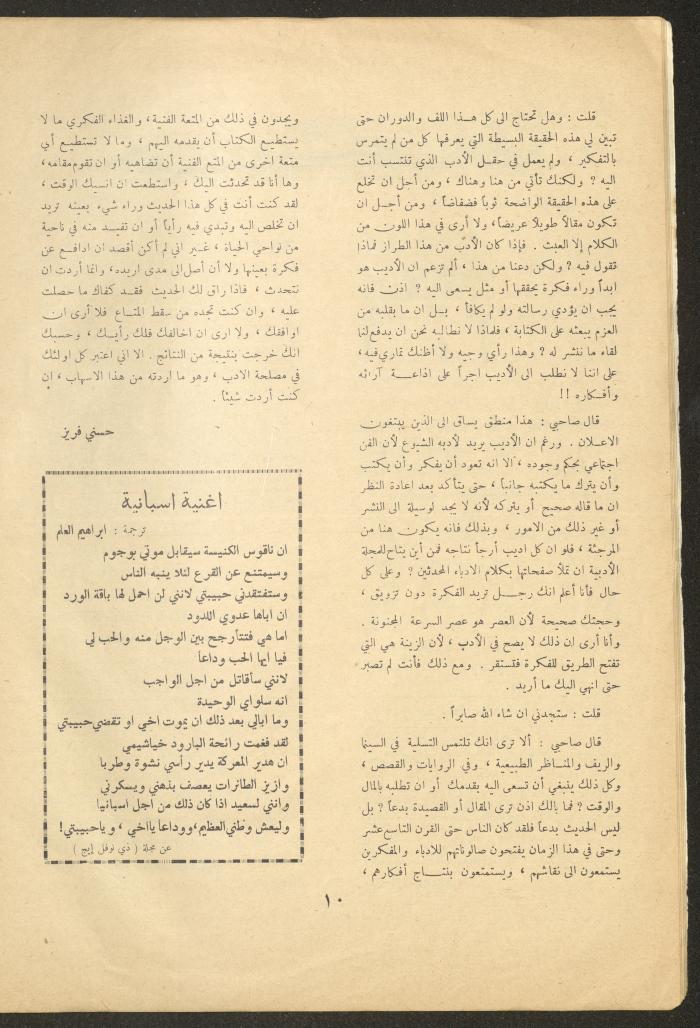 قلت : وهل تحتاج الى كل هــذا اللف والدوران حتى
تبين لي هذه الحقيقة البسيطة التي يعرفها كل من لم يتمرس
بالتفكير ، ولم يعمل في حقــل الأدب الذي تنتسب أنت
اليه ؟ ولكنك تأتي من هنا وهناك ، ومن أجل ان تخلع
على هذه الحقيقة الواضحة ثوباً فضفاضاً ، ومن أجــل ان
تكون مقالاً طويلاً عريضاً، ولا أرى في هذا اللون من
الكلام إلا العبث . فإذا كان الأدب من هذا الطراز فماذا
تقول فيه ؟ ولكن دعنا من هذا ، ألم تزعم ان الأديب هو
ابداً وراء فكرة يحققها أو مثل يسعى اليه ؟ اذن فانه
يجب ان يؤدي رسالته ولو لم يكافأ ، بــل ان ما بقلبه من
العزم يبعثه على الكتابة ، فلماذا لا نطالبه نحن ان يدفع لنا
لقاء ما ننشر له ؟ وهذا رأي وجيه ولا أظنك تماري فيه،
على اننا لا نطلب الى الأديب اجراً على اذاعــة آرائه
وأفكاره !!
قال صاحبي : هذا منطق يساق الى الذين يبتغون
الاعلان . ورغم ان الأديب يريد لأدبه الشيوع لأن الفن
اجتماعي بحكم وجوده ، الا انه تعود أن يفكر وأن يكتب
وأن يترك ما يكتبه جانباً ، حتى يتأكد بعد اعادة النظر
ان ما قاله صحيح أو يتركه لأنه لا يجد لوسيلة الى النشر
أو غير ذلك من الامور ، وبذلك فانه يكون هنا من
المرجئة ، فلو ان كل اديب أرجأ نتاجه فمن أين يتاح للمجلة
الأدبية ان تملأ صفحاتها بكلام الادباء المحدثين ؟ وعلى كل
حال فأنا أعلم انك رجــل تريد الفكرة دون تزويق ،
وحجتك صحيحة لأن العصر هو عصر السرعة المجنونة .
وأنا أرى ان ذلك لا يصح في الأدب ، لأن الزينة هي التي
تفتح الطريق للفكرة فتستقر . ومع ذلك فأنت لم تصبر
حتى انهي اليك ما أريد .
قلت : ستجدني ان شاء الله صابراً .
قال صاحبي : ألا ترى انك تلتمس التسلية في السينما
والريف والمنــاظر الطبيعية ، وفي الروايات والقصص ،
وكل ذلك ينبغي أن تسعى اليه بقدمك أو ان تطلبه بالمال
والوقت ؟ فما بالك اذن ترى المقال أو القصيدة بدعاً ؟ بل
ليس الحديث بدعاً فلقد كان الناس حتى القرن التاسع عشر
وحتى في هذا الزمان يفتحون صالوناتهم للادباء والمفكرين
يستمعون الى نقاشهم ، ويستمتعون بنتــاج أفكارهم ،
ويجدون في ذلك من المتعة الفنية، والغذاء الفكري ما لا
يستطيع الكتاب أن يقدمه اليهم ، وما لا تستطيــع أي
متعة اخرى من المتع الفنية أن تضاهيه أو ان تقوم مقامه،
وها أنا قد تحدثت اليك ، واستطعت ان انسيك الوقت ،
لقد كنت أنت في كل هذا الحديث وراء شيء بعينه تريد
ان تخلص اليه وتبدي فيه رأياً أو ان تفيــد منه في ناحية
من نواحي الحياة ، غــير اني لم أكن أقصد ان ادافــع عن
فكرة بعينها ولا أن أصل الى مدى اريده، وانما أردت ان
نتحدث ، فاذا راق لك الحديث فقــد كفاك ما حصلت
عليه ، وان كنت تجده من سقط المتــاع فلا أرى ان
اوافقك ، ولا ارى ان اخالفك فلك رأيــك ، وحسبك
انك خرجت بنتيجة من النتائج . الا اني اعتبر كل اولئك
في مصلحة الادب ، وهو ما اردته من هذا الاسهاب ، ان
كنت أردت شيئاً .
حسني فريز
اغنية اسبانية
ترجمة : ابراهيم العلم
ان ناقوس الكنيسة سيقابل موتي بوجوم
وسيمتنع عن القرع لئلا ينبه الناس
وستفتقدني حبيبتي لانني لن احمل لها باقة الورد
ان اباها عدوي اللدود
اما هي فتتأرجح بين الوجل منه والحب لي
فيا ايها الحب وداعاً
لانني سأقاتل من اجل الواجب
انه سلواي الوحيدة
وما ابالي بعد ذلك ان يموت اخي او تقضي حبيبتي
لقد فغمت رائحة البارود خياشيمي
ان هدير المعركة يدير رأسي نشوة وطربا
وازيز الطائرات يعصف بذهني ويسكرني
وانني لسعيد اذا كان ذلك من اجل اسبانيا
وليعش وطني العظيم، ووداعاً يا اخي ، ويا حبيبتي!
عن مجلة ( ذي نوفل إيج )
١٠